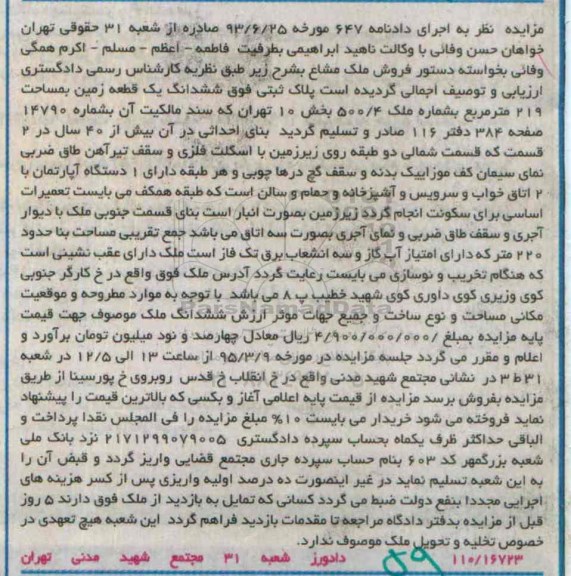 مزایده نظر به اجرای دادنامه ۶۴۷ مورخه ۹۳/۶/۲۵ صادره از شعبه ۳۱ حقوقی تهران
خواهان حسن وفائی با وکالت ناهید ابراهیمی بطرفیت فاطمه - اعظم - مسلم - اکرم همگی
وفائی بخواسته دستور فروش ملک مشاع بشرح زیر طبق نظریه کارشناس رسمی دادگستری
ارزیابی و توصیف اجمالی گردیده است پلاک ثبتی فوق ششدانگ یک قطعه زمین بمساحت
۲۱۹ مترمربع بشماره ملک ۵۰۰/۴ بخش ۱۰ تهران که سند مالکیت آن بشماره ۱۴۷۹۰
صفحه ۳۸۴ دفتر ۱۱۶ صادر و تسلیم گردید بنای احداثی در آن بیش از ۴۰ سال در ۲
قسمت که قسمت شمالی دو طبقه روی زیرزمین با اسکلت فلزی و سقف تیرآهن طاق ضربی
نمای سیمان کف موزاییک بدنه و سقف گچ درها چوبی و هر طبقه دارای ۱ دستگاه آپارتمان با
۲ اتاق خواب و سرویس و آشپزخانه و حمام و سالن است که طبقه همکف می بایست تعمیرات
اساسی برای سکونت انجام گردد زیرزمین بصورت انبار است بنای قسمت جنوبی ملک با دیوار
آجری و سقف طاق ضربی و نمای آجری بصورت سه اتاق می باشد جمع تقریبی مساحت بنا حدود
۲۲۰ متر که دارای امتیاز آب گاز و سه انشعاب برق تک فاز است ملک دارای عقب نشینی است
که هنگام تخریب و نوسازی می بایست رعایت گردد آدرس ملک فوق واقع در خ کارگر جنوبی
کوی وزیری کوی داوری کوی شهید خطیب پ ۸ می باشد با توجه به موارد مطروحه و موقعیت
مکانی مساحت و نوع ساخت و جمیع جهات موثر ارزش ششدانگ ملک موصوف جهت قیمت
پایه مزایده بمبلغ ۴/۹۰۰/۰۰۰/۰۰۰ ریال معادل چهارصد و نود میلیون تومان برآورد و
اعلام و مقرر می گردد جلسه مزایده در مورخه ۹۵/۳/۹ از ساعت ۱۳ الی ۱۲/۵ در شعبه
۳۱ ط ۳ در نشانی مجتمع شهید مدنی واقع در خ انقلاب خ قدس روبروی خ پورسینا از طریق
مزایده بفروش برسد مزایده از قیمت پایه اعلامی آغاز و بکسی که بالاترین قیمت را پیشنهاد
نماید فروخته می شود خریدار می بایست ۱۰% مبلغ مزایده را فی المجلس نقدا پرداخت و
الباقی حداکثر ظرف یکماه بحساب سپرده دادگستری ۲۱۷۱۲۹۹۰۷۹۰۰۵ نزد بانک ملی
شعبه بزرگمهر کد ۶۰۳ بنام حساب سپرده جاری مجتمع قضایی واریز گردد و قبض آن را
به این شعبه تسلیم نماید در غیر اینصورت ده درصد اولیه واریزی پس از کسر هزینه های
اجرایی مجددا بنفع دولت ضبط می گردد کسانی که تمایل به بازدید از ملک فوق دارند ۵ روز
قبل از مزایده بدفتر دادگاه مراجعه تا مقدمات بازدید فراهم گردد این شعبه هیچ تعهدی در
خصوص تخلیه و تحویل ملک موصوف ندارد.
۱۱۰/۱۶۷۲۳ دادورز شعبه ۳۱ مجتمع شهید مدنی تهران